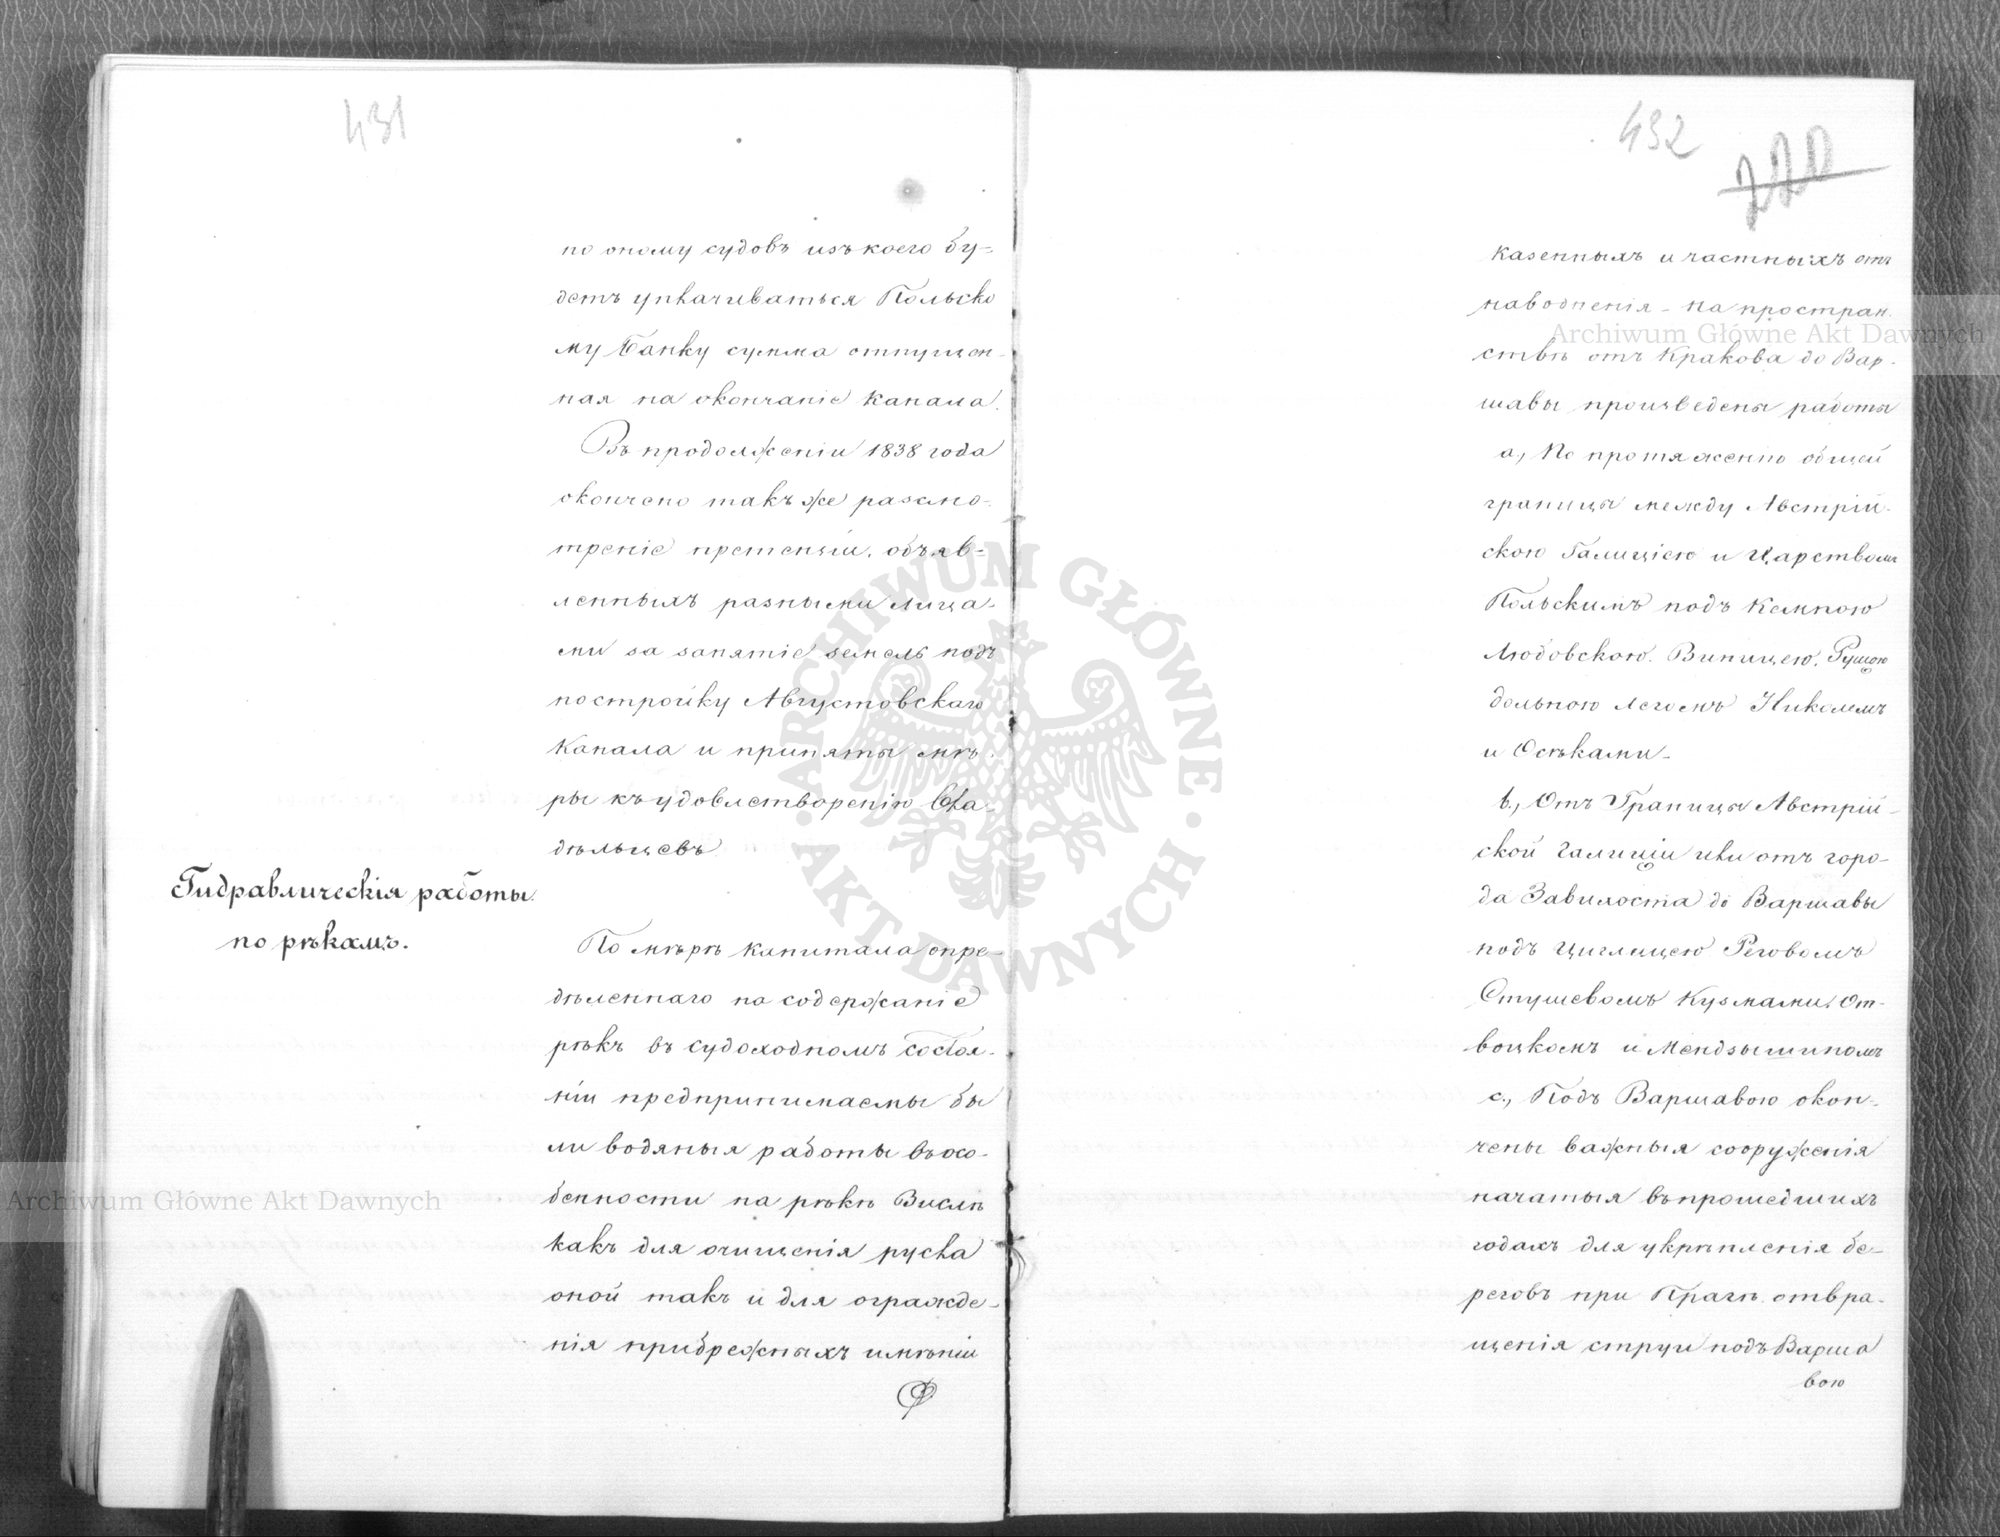 431
по оному судовъ изъ коего бу=
детъ уплачиваться Польско
му Банку сумма отпущен-
ная на окончаніе канала.
Въ продолженіи 1838 года
окончено такъ же разсмо-
треніе претенціи, объяв=
ленныхъ разными лица-
ми за занятіе земель подъ
постройку Августовскаго
Канала и приняты мѣ-
ры къ удовлетворенію вла-
дѣльцевъ
Гидравлическія работы
по рѣкамъ.
По мѣрѣ капитала опре-
дѣленнаго на содержаніе
рѣкъ въ судоходномъ состоя-
ніи предпринимаемы бы
ли водяныя работы въ осо-
бенности на рѣкѣ Вислѣ
какъ для очищенія русла
оной такъ и для огражде-
нія прибрежныхъ имѣніи
432
220
казенныхъ и частныхъ отъ
наводненія - на простран
ствѣ отъ Кракова до Вар-
шавы произведены работы
а, По протяженію общей
границы между Австрій-
скою Галиціею и Царствомъ
Польскимъ подъ Кемпою
Людовскою. Виницею,
дольною Легомъ Николемъ
и Осѣками -
b., Отъ Границы Австрій-
ской Галиціи или отъ горо-
да Завихоста до Варшавы
подъ Циглицею Реговомъ
Стушевомъ Кузмами, От-
воцкомъ и Мендзышиномъ
c., Подъ Варшавою окон-
чены важныя сооруженія
начатыя въ прошедшихъ
годахъ для укрѣпленія бе-
реговъ при Прагѣ. отвра-
щенія струи подъ Варша
вою
Archiwum Główne Akt Dawnych
Archiwum Główne Akt Dawnych
ARCHIWUM GŁÓWNE · AKT DAWNYCH ·